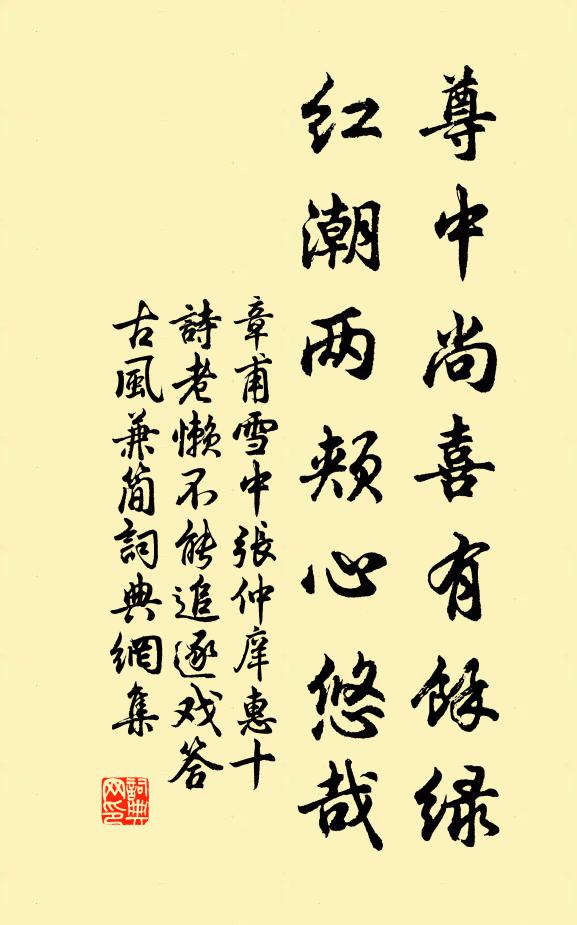 尊中尚喜有餘緑
紅潮两頰心悠哉
章甫雪中張仲庠惠十
詩老懶不能追逐戏答
古風兼简詞典網集
詞典网印